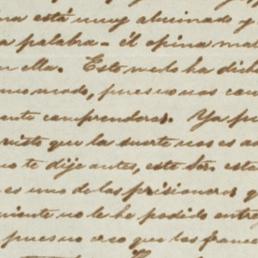 na está muy abuinado y
a palabra - él opina mal
n ella. Esto me lo ha dich
mo modo, pues no nos con
ente comprenderas. Ya pu
visto que la suerte nos es ad
no te dije antes, este Sor. esta
es uno de los prisioneros q
niente no le he podido entre
pues no creo que los france